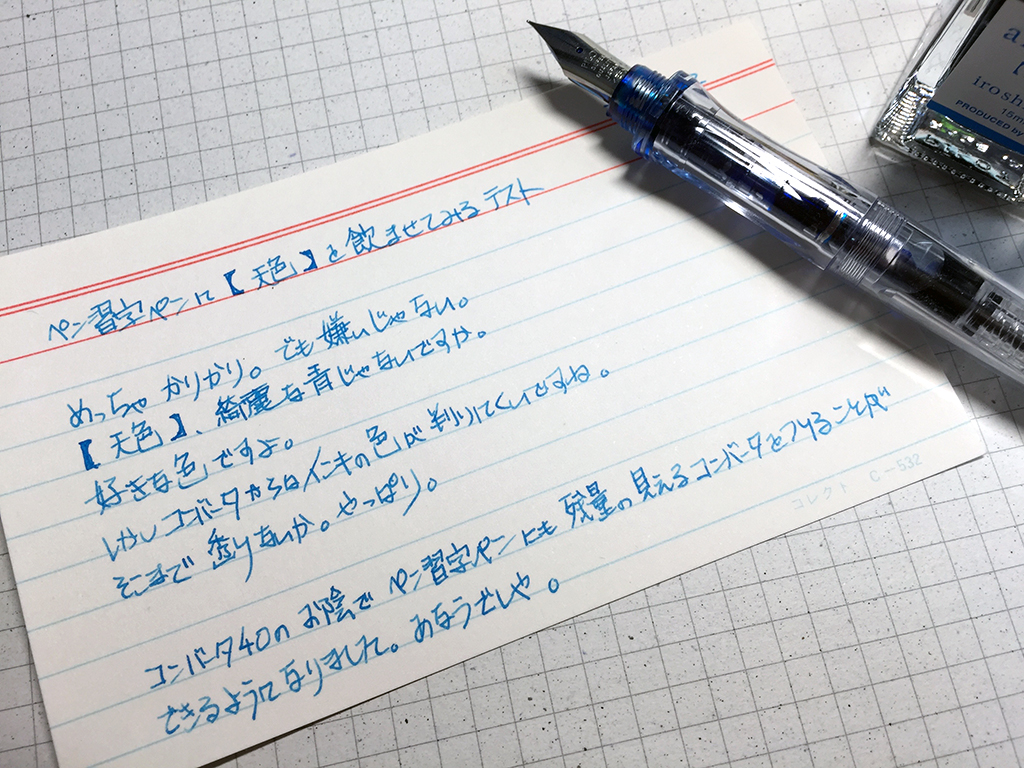 ペン習字ペンに【天色】を飲ませてみるテスト
めっちゃかりかり。でも嫌いじゃない。
【天色】、綺麗な青じゃないですか。
好きな色ですよ。
しかしコンバータからはインキの色が判りにくいですね。
そこまで香りないか。やっぱり。
コンバータ40のお陰でペン習字ペンにも残量の見えるコンバータをつけることが
できるようになりました。ありがとうや。
コレクト C-532
irosh
15m
PRODUCED BY